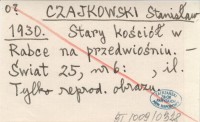 07 CZAJKOWSKI Stanisław
1930. Stary kościół w
Rabce na przedwiośniu. –
Świat 25, nr 6: ; il.
Tylko reprod. obrazu.